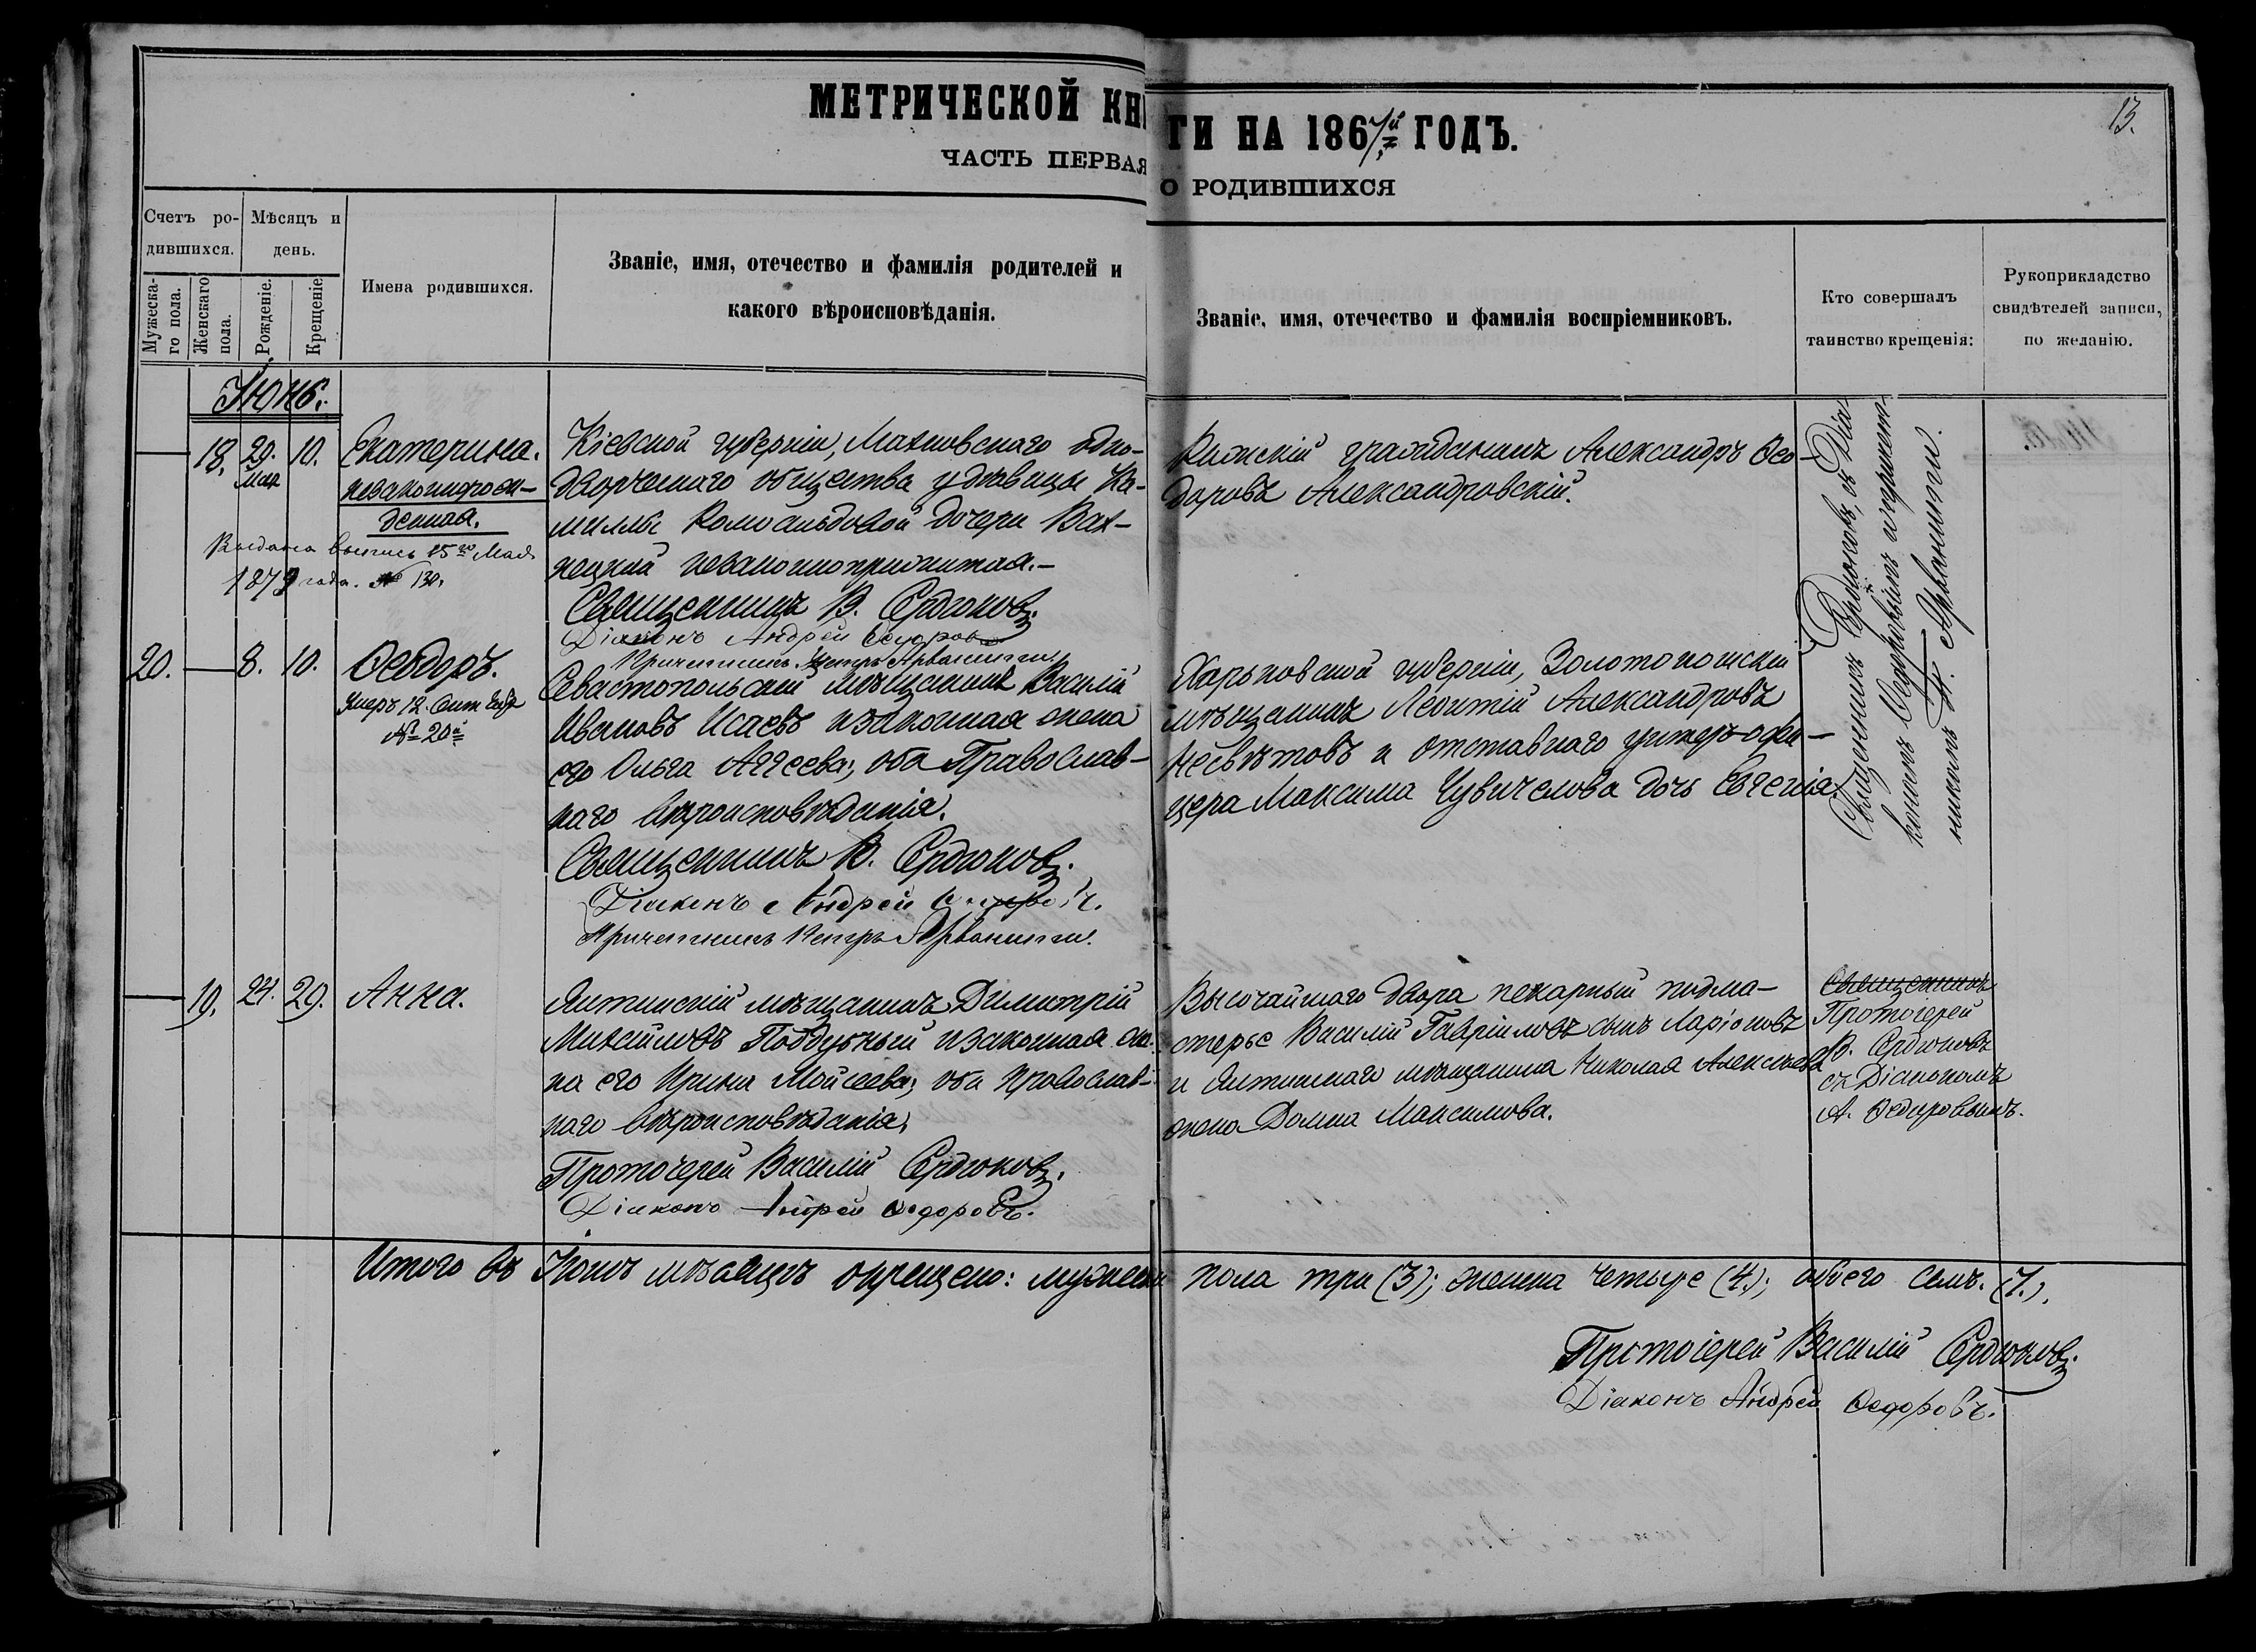 МЕТРИЧЕСКОЙ КНИ
ГИ НА 1867й ГОДЪ.
13.
ЧАСТЬ ПЕРВАЯ
О РОДИВШИХСЯ
Счетъ ро-
дившихся.
Мужеска-
го пола.
Женскаго
пола.
Мѣсяцъ и
день.
Рожденіе.
Крещеніе.
Имена родившихся.
Званіе, имя, отечество и фамилія родителей и
какого вѣроисповѣданія.
Званіе, имя, отечество и фамилія воспріемниковъ.
Кто совершалъ
таинство крещенія:
Рукоприкладство
свидѣтелей записи,
по желанію.
Іюнь.
18. 29. Мая 10.
Екатерина.
незаконнрож-
денная.
Выдана выпись 15го Мая
1879 года. № 130.
Кіевской губерніи, Махновскаго одно-
дворческаго общества вдовицы Ка-
миллы Ромоальдовой дочери
незаконноприжитая.
Священникъ В. Сердюковъ.
Діаконъ Андрей Ѳедоровъ
Причетникъ Петръ Арванитти
Рижскій гражданинъ Александръ Ѳео-
доровъ Александровскій.
Священникъ Сердюковъ, съ Діа-
кономъ Ѳедоровымъ и причет-
никомъ П. Арванитти.
20. 8. 10.
Ѳеодоръ.
Умеръ 12. Сент.
№ 20й
Севастопольскій мѣщанинъ Василій
Ивановъ Исаевъ и законная жена
его Ольга Аггеева, оба Православ-
наго вѣроисповѣданія.
Священникъ В. Сердюковъ.
Діаконъ Андрей Ѳедоровъ.
Причетникъ Петръ Арванитти.
Харьковской губерніи, Золотоношскій
мѣщанинъ Леонтій Александровъ
Несвѣтовъ и отставнаго унтеръ-офи-
цера Максима Чувичелова дочь Евгенія.
19. 24. 29.
Анна.
Ялтинскій мѣщанинъ Димитрій
Михайловъ Поддубный и законная же-
на его Ирина Мойсеева, оба православ-
наго вѣроисповѣданія,
Протоіерей Василій Сердюковъ.
Діаконъ Андрей Ѳедоровъ.
Высочайшаго двора пекарный подма-
стерье Василій Гавріиловъ сынъ Ларіоновъ
и Ялтинскаго мѣщанина Николая Алексѣева
жена Домна Максимова.
Священникъ
Протоіерей
В. Сердюковъ
съ Діакономъ
А. Ѳедоровымъ.
Итого въ Іюнѣ мѣсяцѣ окрещено: мужеска пола три (3); женска четыре (4); обоего семь. (7.).
Протоіерей Василій Сердюковъ.
Діаконъ Андрей Ѳедоровъ.